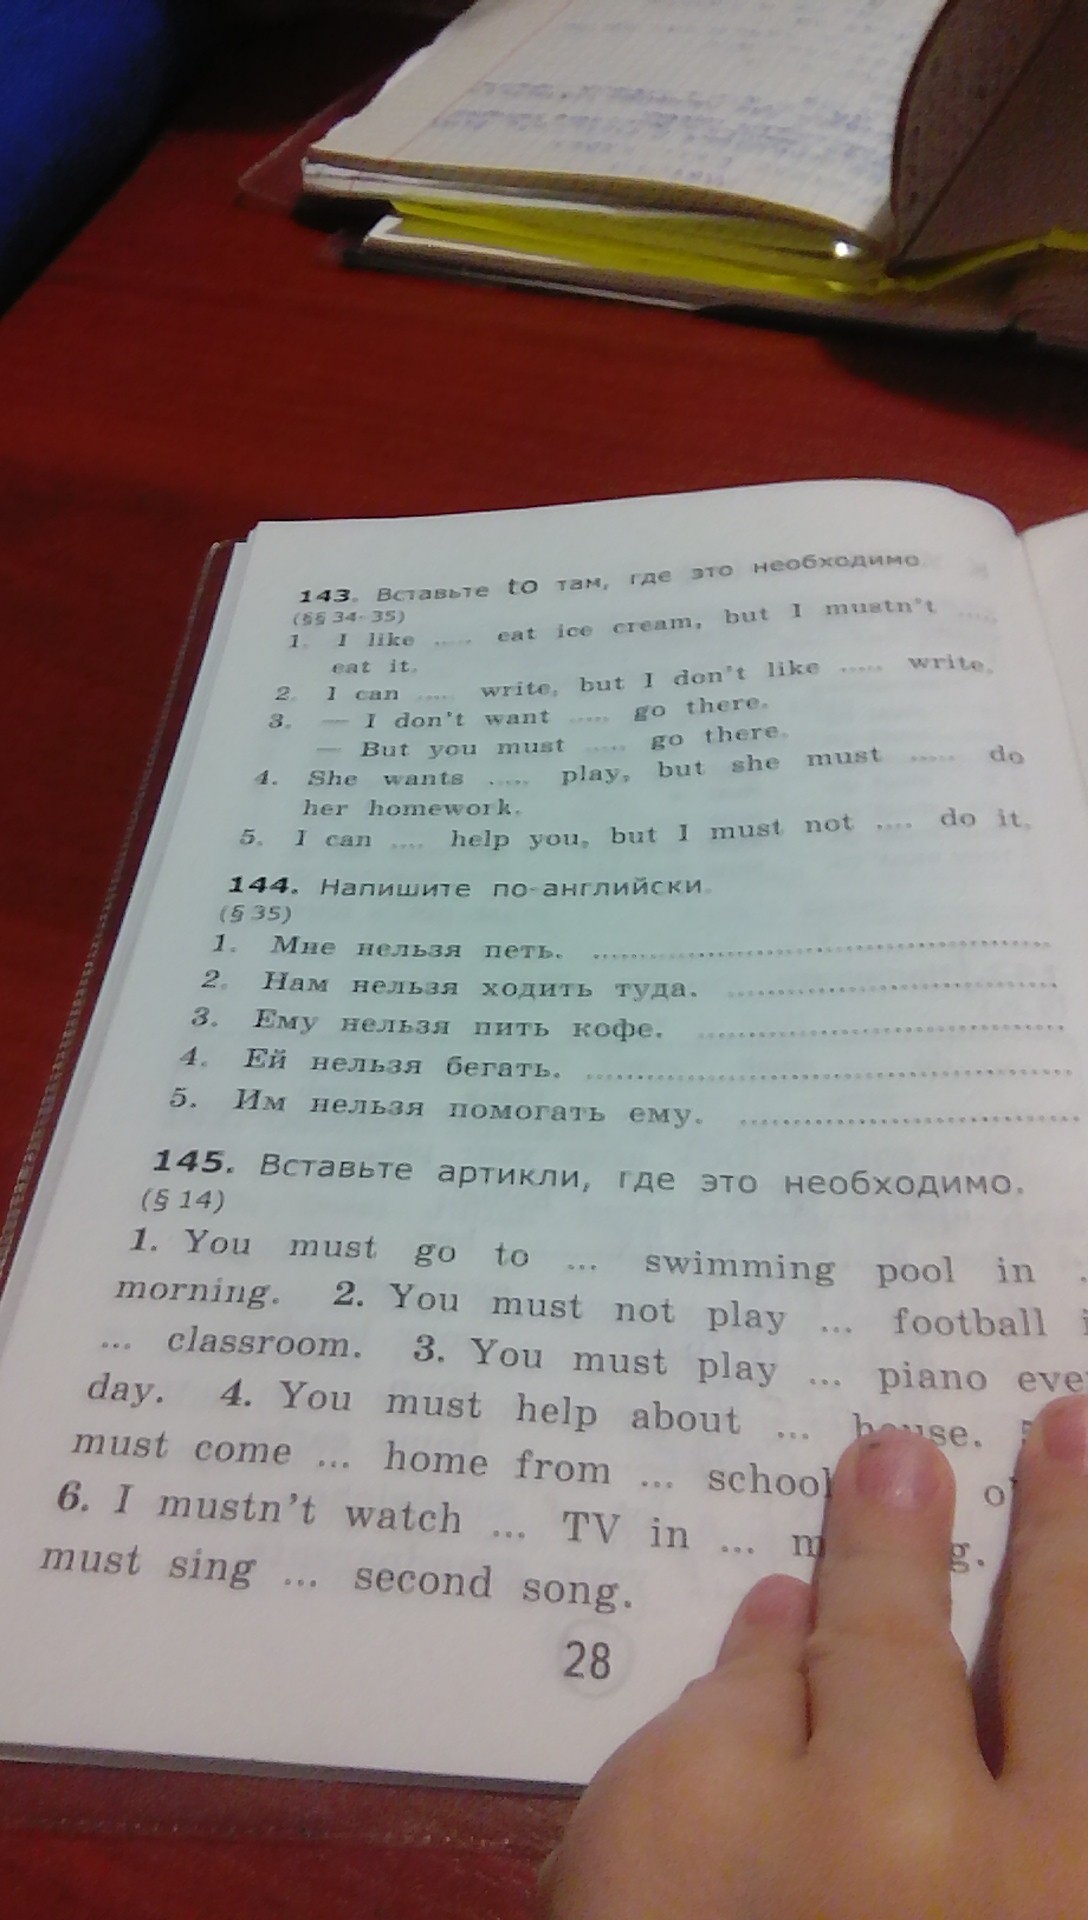 143. Вставьте to там, где это необходимо.
(§§ 34-35)
1. I like ..... eat ice cream, but I mustn't .....
eat it.
2. I can .... write, but I don't like ..... write.
3. — I don't want ..... go there.
— But you must ..... go there.
4. She wants ..... play, but she must ..... do
her homework.
5. I can .... help you, but I must not .... do it.
144. Напишите по-английски.
(§ 35)
1. Мне нельзя петь. ........................................
2. Нам нельзя ходить туда. ..............................
3. Ему нельзя пить кофе. .................................
4. Ей нельзя бегать. ........................................
5. Им нельзя помогать ему. .............................
145. Вставьте артикли, где это необходимо.
(§ 14)
1. You must go to ... swimming pool in
morning. 2. You must not play ... football
... classroom. 3. You must play ... piano
day. 4. You must help about ... house.
must come ... home from ... school
6. I mustn't watch ... TV in ...
must sing ... second song.
28